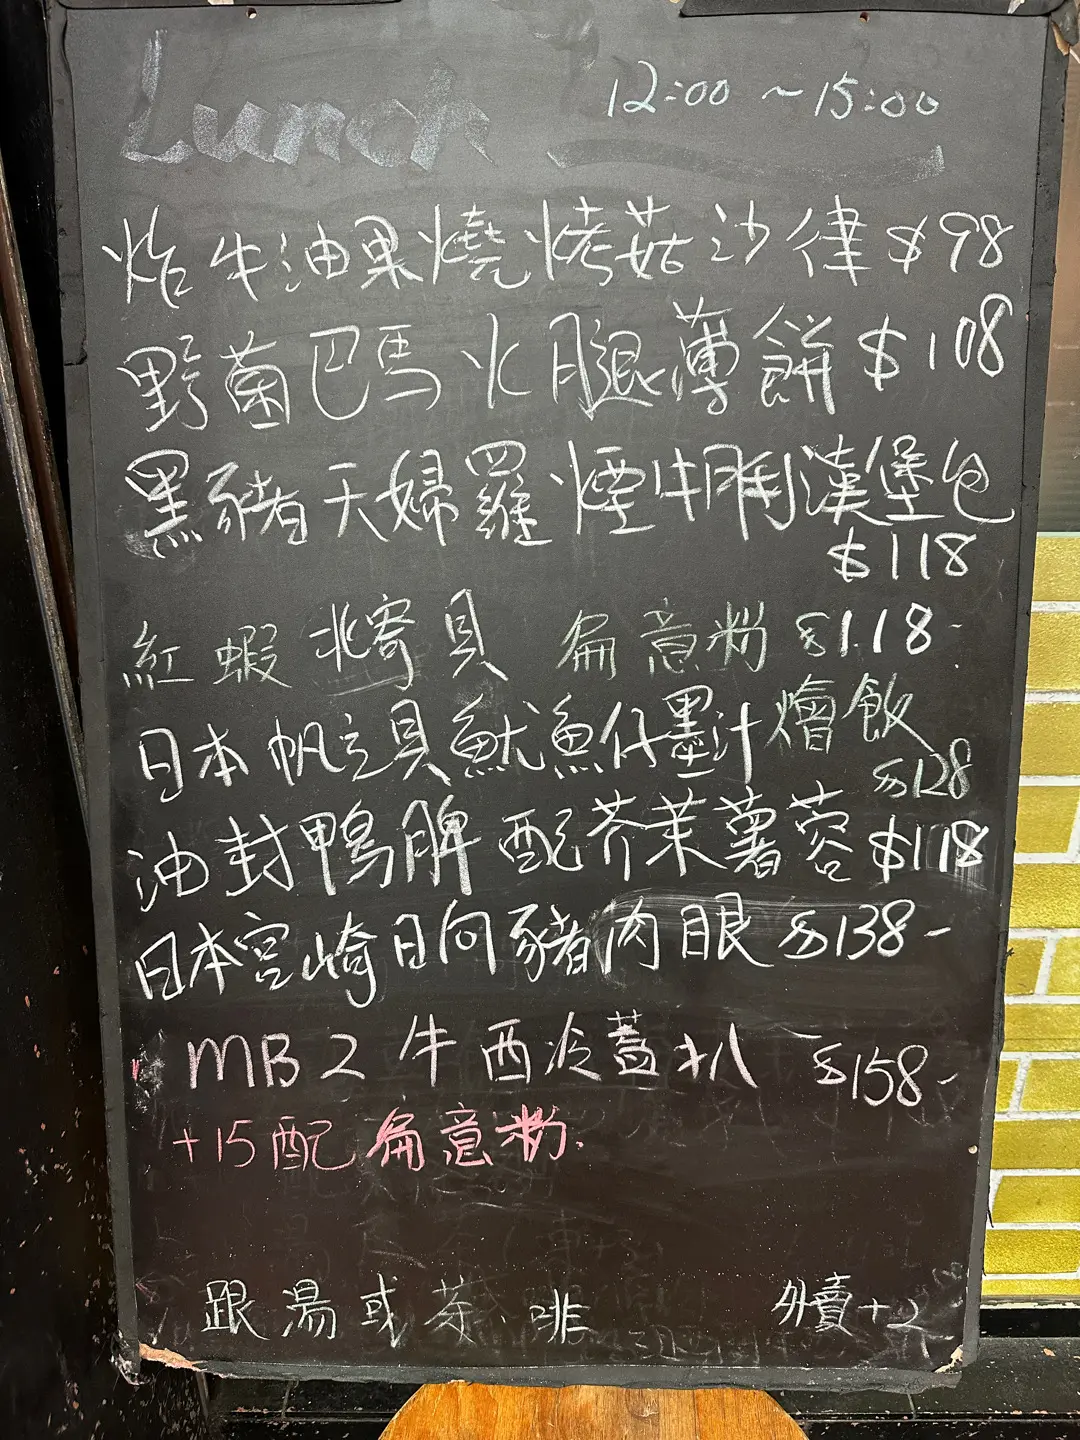 Lunch 12:00 ~15:00
炲牛油果燒烤菇沙律 $98
野菌巴馬火腿薄餅 $108
黑豬天婦羅煙牛脷漢堡包
$118
紅蝦北寄貝 扁意粉 $118-
日本帆立貝魷魚仔墨汁燴飯
$128
油封鴨脾配芥茉薯蓉 $118
日本宮崎日向豬肉眼 $138-
MB2牛西冷蓋扒 $158-
+15配扁意粉.
跟湯或茶.啡 外賣+2